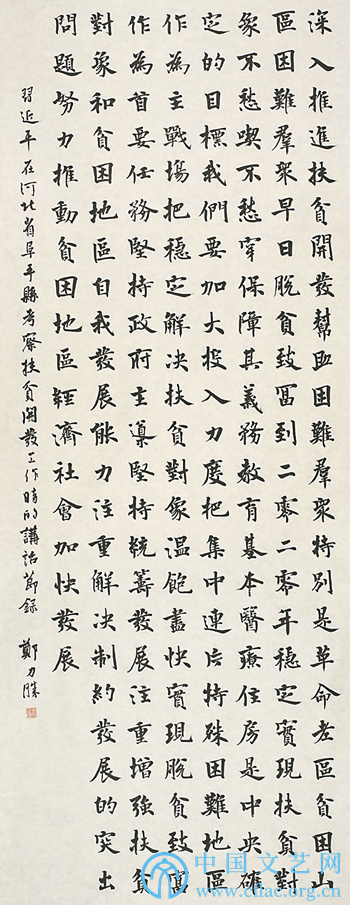 深入推進扶貧開發幫助困難羣眾特別是革命老區貧困山
區困難羣眾早日脫貧致富到二零二零年穩定實現扶貧對
象不愁喫不愁穿保障其義務教育基本醫療住房是中央確
定的目標我們要加大投入力度把集中連片特殊困難地區
作為主戰場把穩定解決扶貧對象溫飽盡快實現脫貧致富
作為首要任務堅持政府主導堅持統籌發展注重增強扶貧
對象和貧困地區自我發展能力注重解決制約發展的突出
問題努力推動貧困地區經濟社會加快發展
習近平在河北省阜平縣考察扶貧開發工作時的講話節錄 鄭力勝
中国文艺网
www.cflac.org.cn